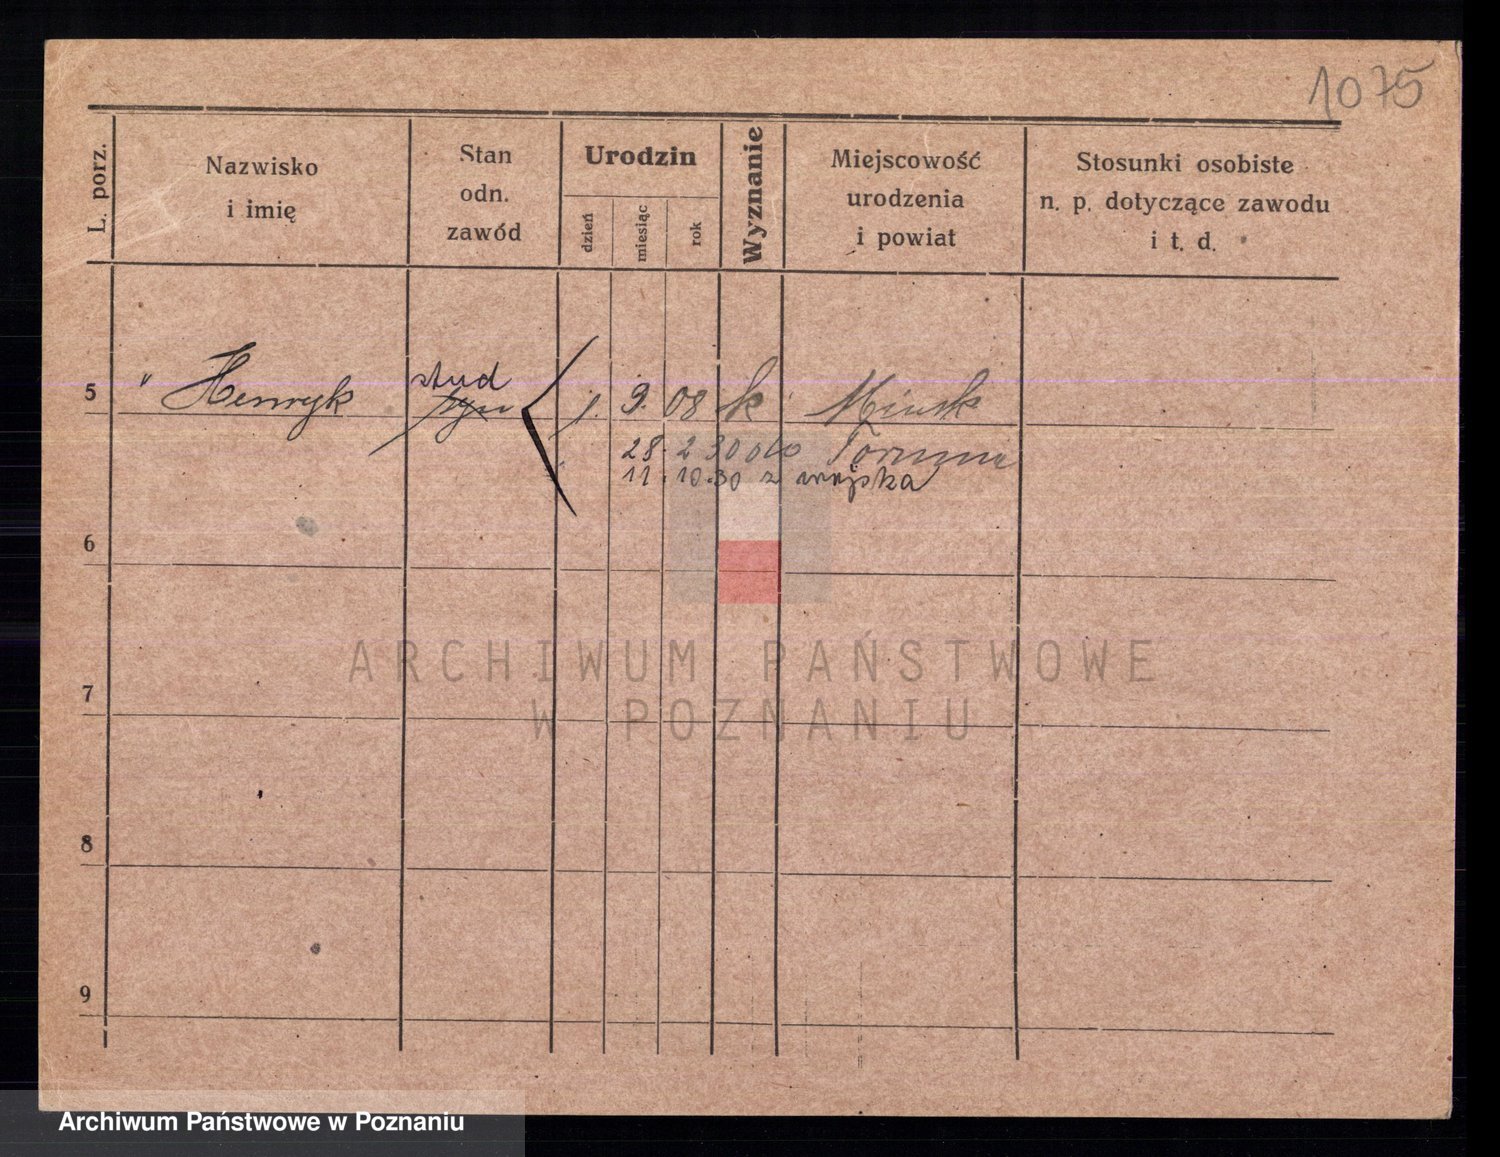 1075
L. porz.
Nazwisko
i imię
Stan
odn.
zawód
Urodzin
dzień
miesiąc
rok
Wyznanie
Miejscowość
urodzenia
i powiat
Stosunki osobiste
n. p. dotyczące zawodu
i t. d.
stud
5 " Henryk syn 1. 9. 08 k Mińsk
28. 2 30 do Torunia
11. 10. 30 z wojska
6
7
8
9
ARCHIWUM PAŃSTWOWE
W POZNANIU
Archiwum Państwowe w Poznaniu